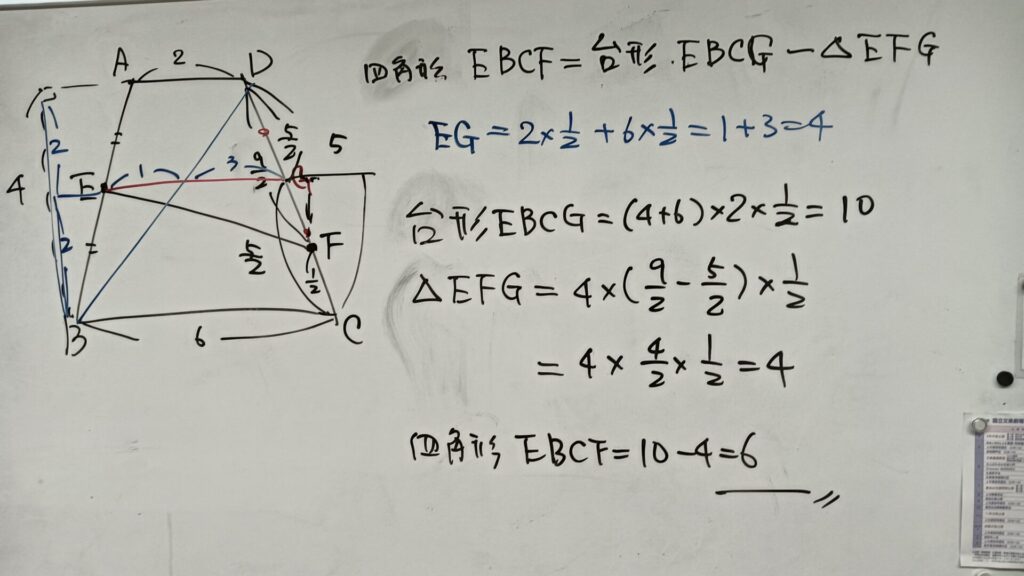 A 2 D
4 2 2
E 1 3 G
5/2 5
9/2
F
5/2 1/2
B 6 C
四角形 EBCF = 台形.EBCG − △EFG
EG = 2×1/2 + 6×1/2 = 1+3=4
台形EBCG = (4+6)×2×1/2 = 10
△EFG = 4×(9/2 − 5/2)×1/2
= 4×4/2×1/2 = 4
四角形 EBCF = 10−4=6